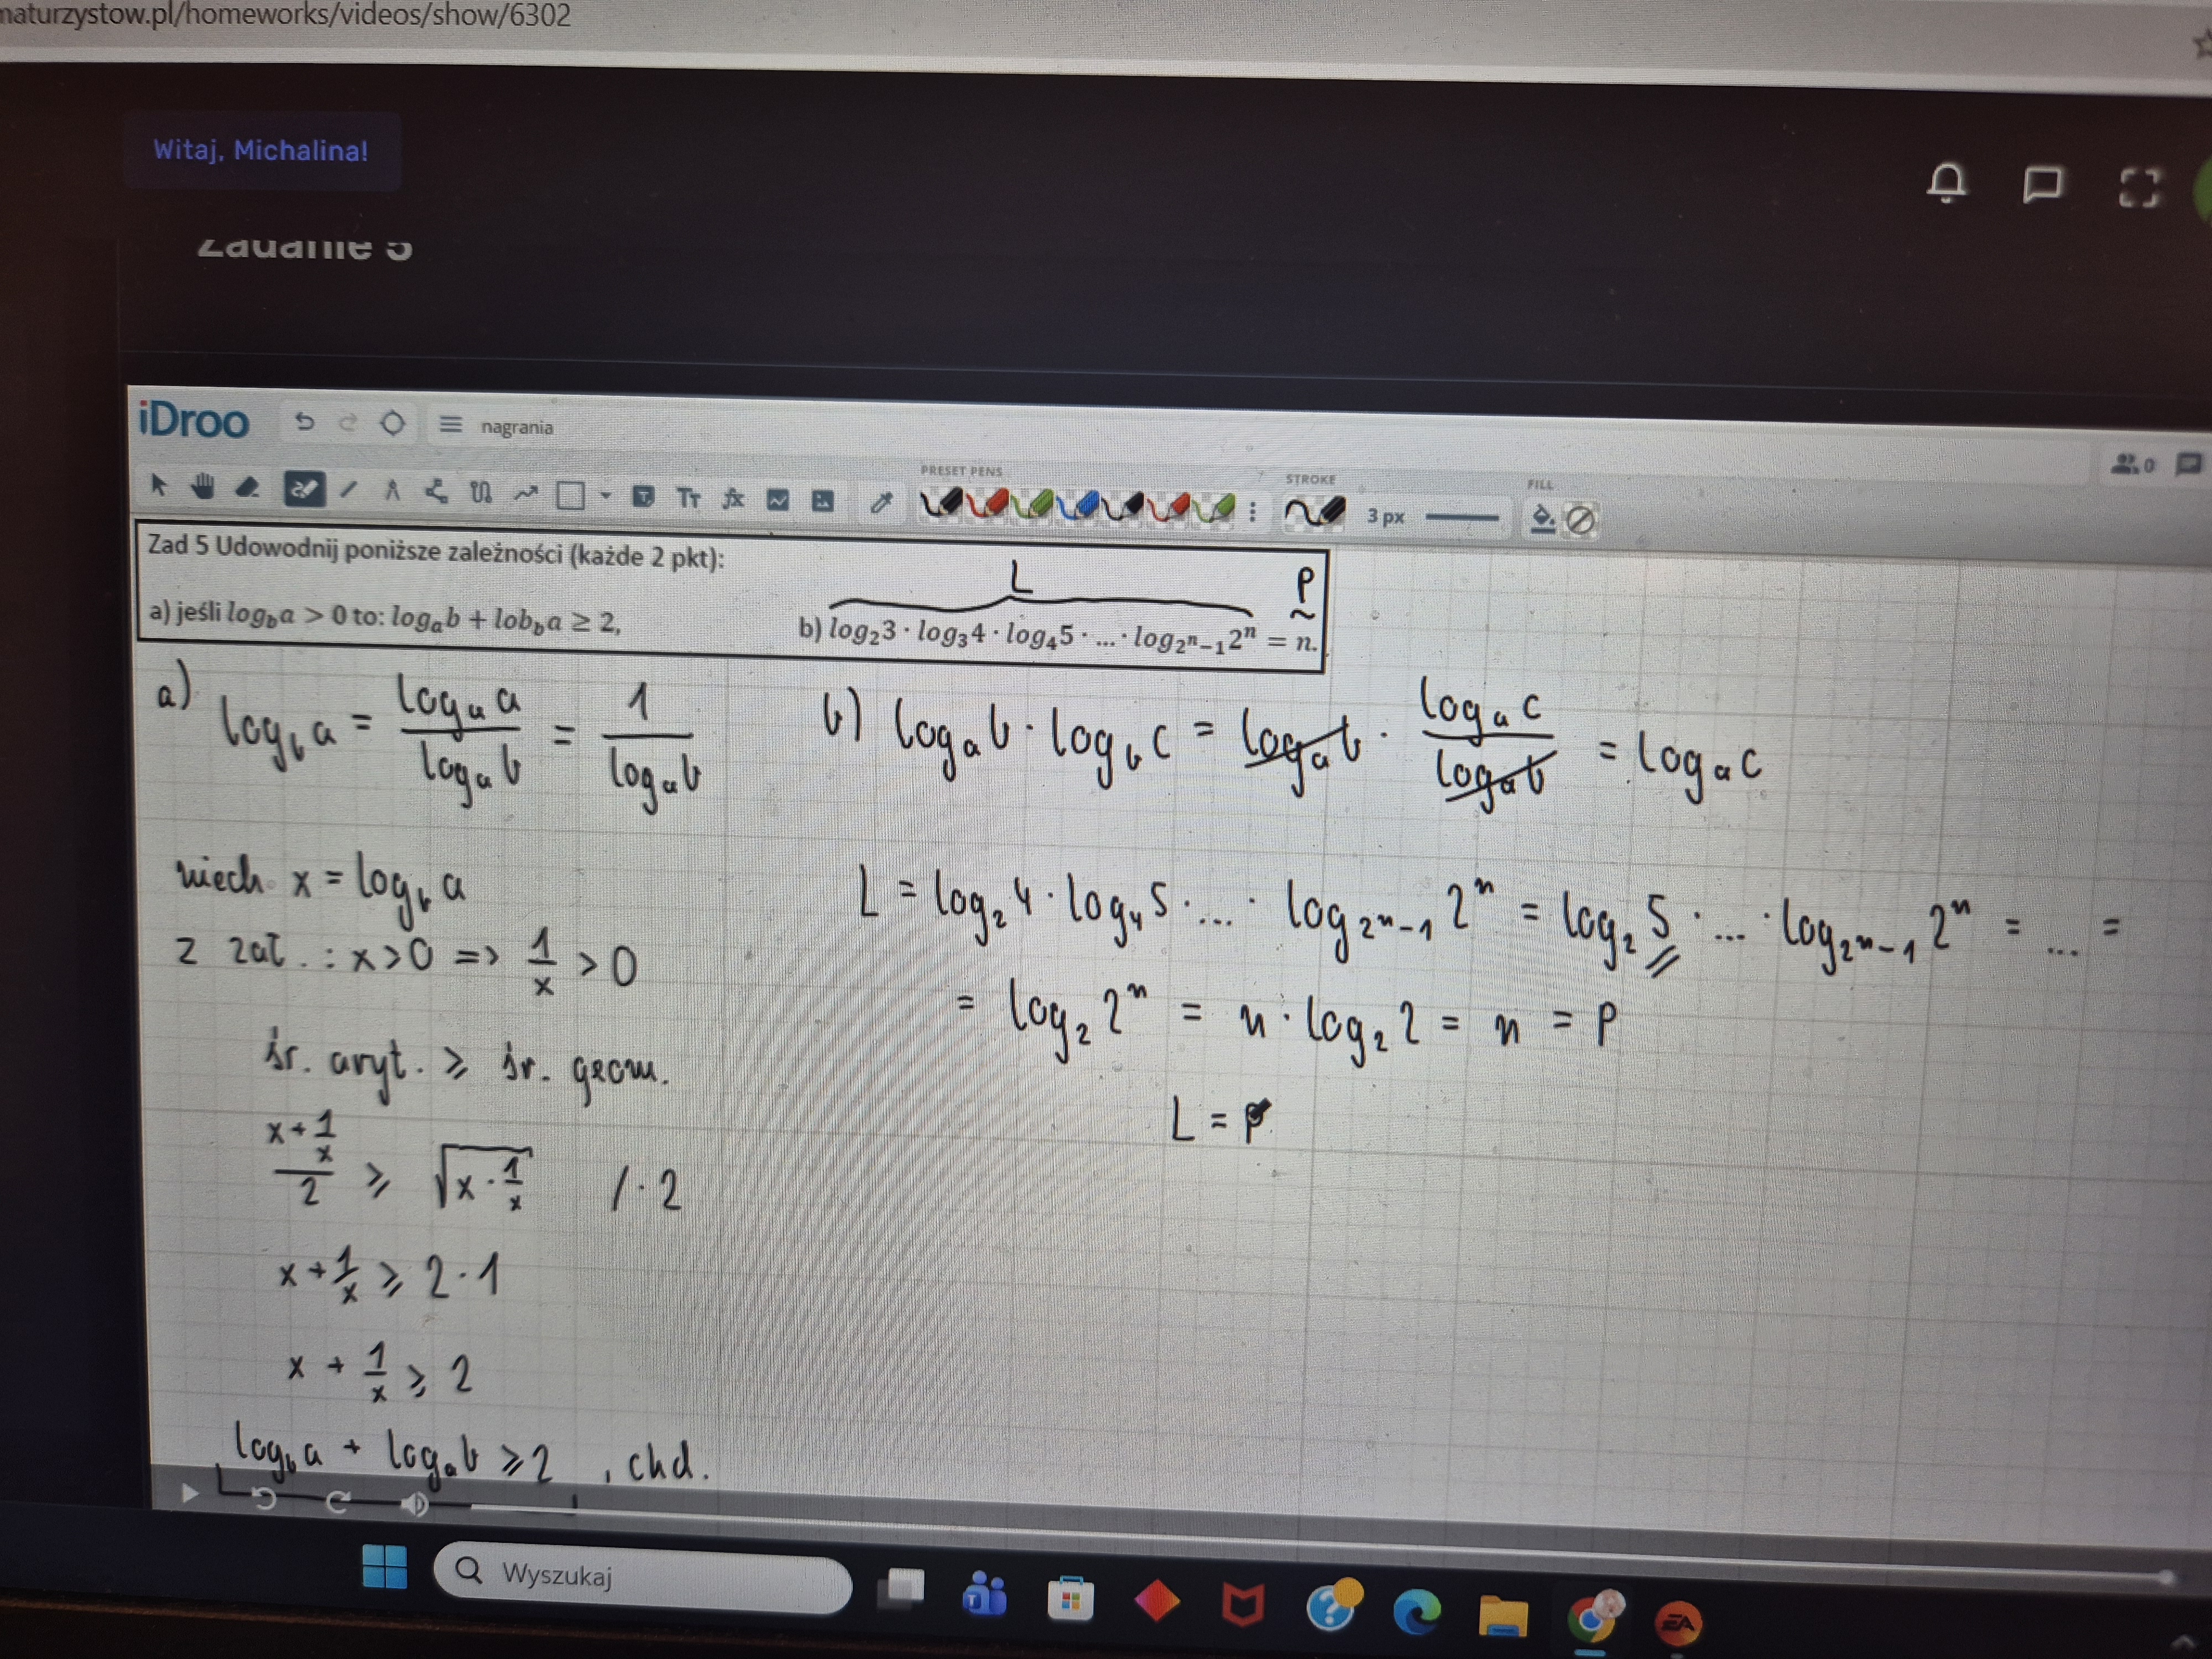 naturzystow.pl/homeworks/videos/show/6302
Witaj, Michalina!
Zadanie 5
iDroo
nagrania
0
PRESET PENS
STROKE
3 px
FILL
Zad 5 Udowodnij poniższe zależności (każde 2 pkt):
L
P
a) jeśli log_b a > 0 to: log_a b + lob_b a ≥ 2,
b) log_2 3 · log_3 4 · log_4 5 · ... · log_{2^n-1} 2^n = n.
a) log_b a = (log_a a)/(log_a b) = 1/(log_a b)
niech x = log_b a
z zał. : x>0 => 1/x > 0
śr. aryt. ≥ śr. geom.
(x+1/x)/2 ≥ √(x · 1/x) / · 2
x + 1/x ≥ 2 · 1
x + 1/x ≥ 2
log_b a + log_a b ≥ 2 , chd.
b) log_a b · log_b c = log_a b · (log_a c)/(log_a b) = log_a c
L = log_2 4 · log_4 5 · ... · log_{2^n-1} 2^n = log_2 5 · ... · log_{2^n-1} 2^n = ... =
= log_2 2^n = n · log_2 2 = n = P
L = P
Wyszukaj
EA